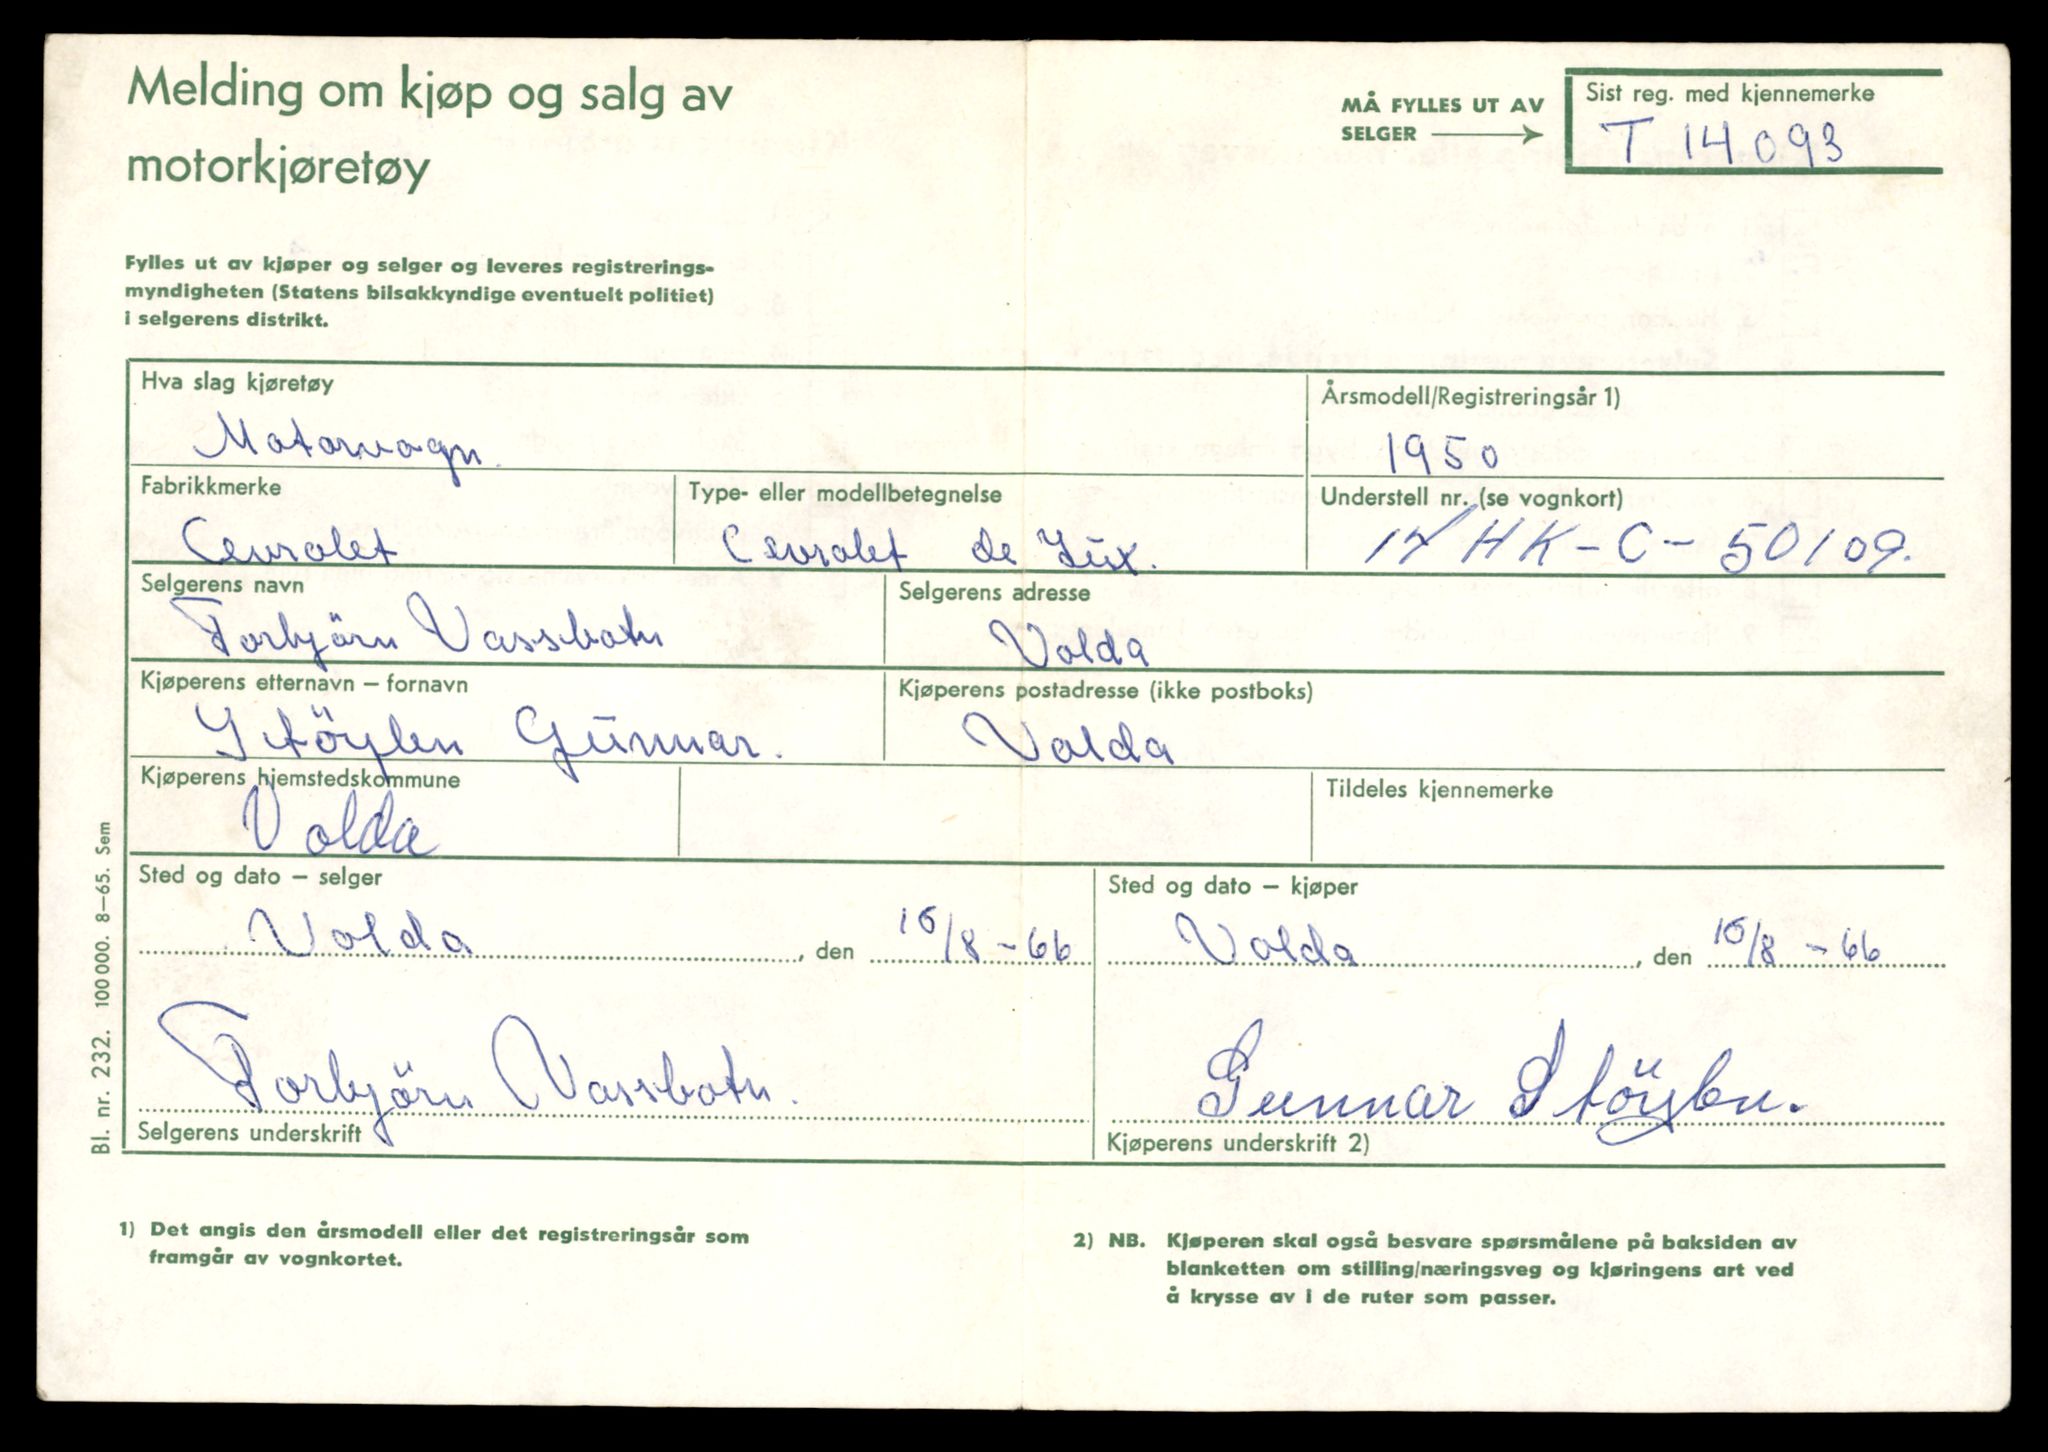 Melding om kjøp og salg av
motorkjøretøy
MÅ FYLLES UT AV
SELGER
Sist reg. med kjennemerke
T 14093
Fylles ut av kjøper og selger og leveres registrerings-
myndigheten (Statens bilsakkyndige eventuelt politiet)
i selgerens distrikt.
Hva slag kjøretøy
Motorvogn.
Årsmodell/Registreringsår 1)
1950
Fabrikkmerke
Cevrolet
Type- eller modellbetegnelse
Cevrolet de Lux.
Understell nr. (se vognkort)
14 HK-C-50109.
Selgerens navn
Torbjörn Vassbotn
Selgerens adresse
Volda
Kjøperens etternavn – fornavn
Stöylen Gunnar.
Kjøperens postadresse (ikke postboks)
Volda
Kjøperens hjemstedskommune
Volda
Tildeles kjennemerke
Sted og dato – selger
Volda, den 16/8 - 66
Sted og dato – kjøper
Volda, den 16/8 - 66
Torbjörn Vassbotn.
Selgerens underskrift
Gunnar Stöylen.
Kjøperens underskrift 2)
Bl. nr. 232. 100 000. 8–65. Sem
1) Det angis den årsmodell eller det registreringsår som
framgår av vognkortet.
2) NB. Kjøperen skal også besvare spørsmålene på baksiden av
blanketten om stilling/næringsveg og kjøringens art ved
å krysse av i de ruter som passer.